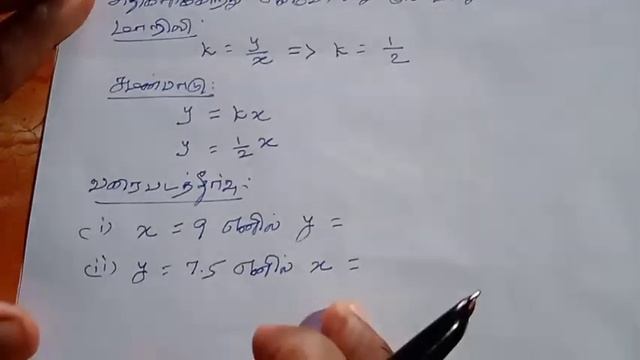 மாறிலி:
k = y/x => k = 1/2
சமன்பாடு:
y = kx
y = 1/2 x
வரைபடத்தீர்வு:
(i) x = 9 எனில் y =
(ii) y = 7.5 எனில் x =